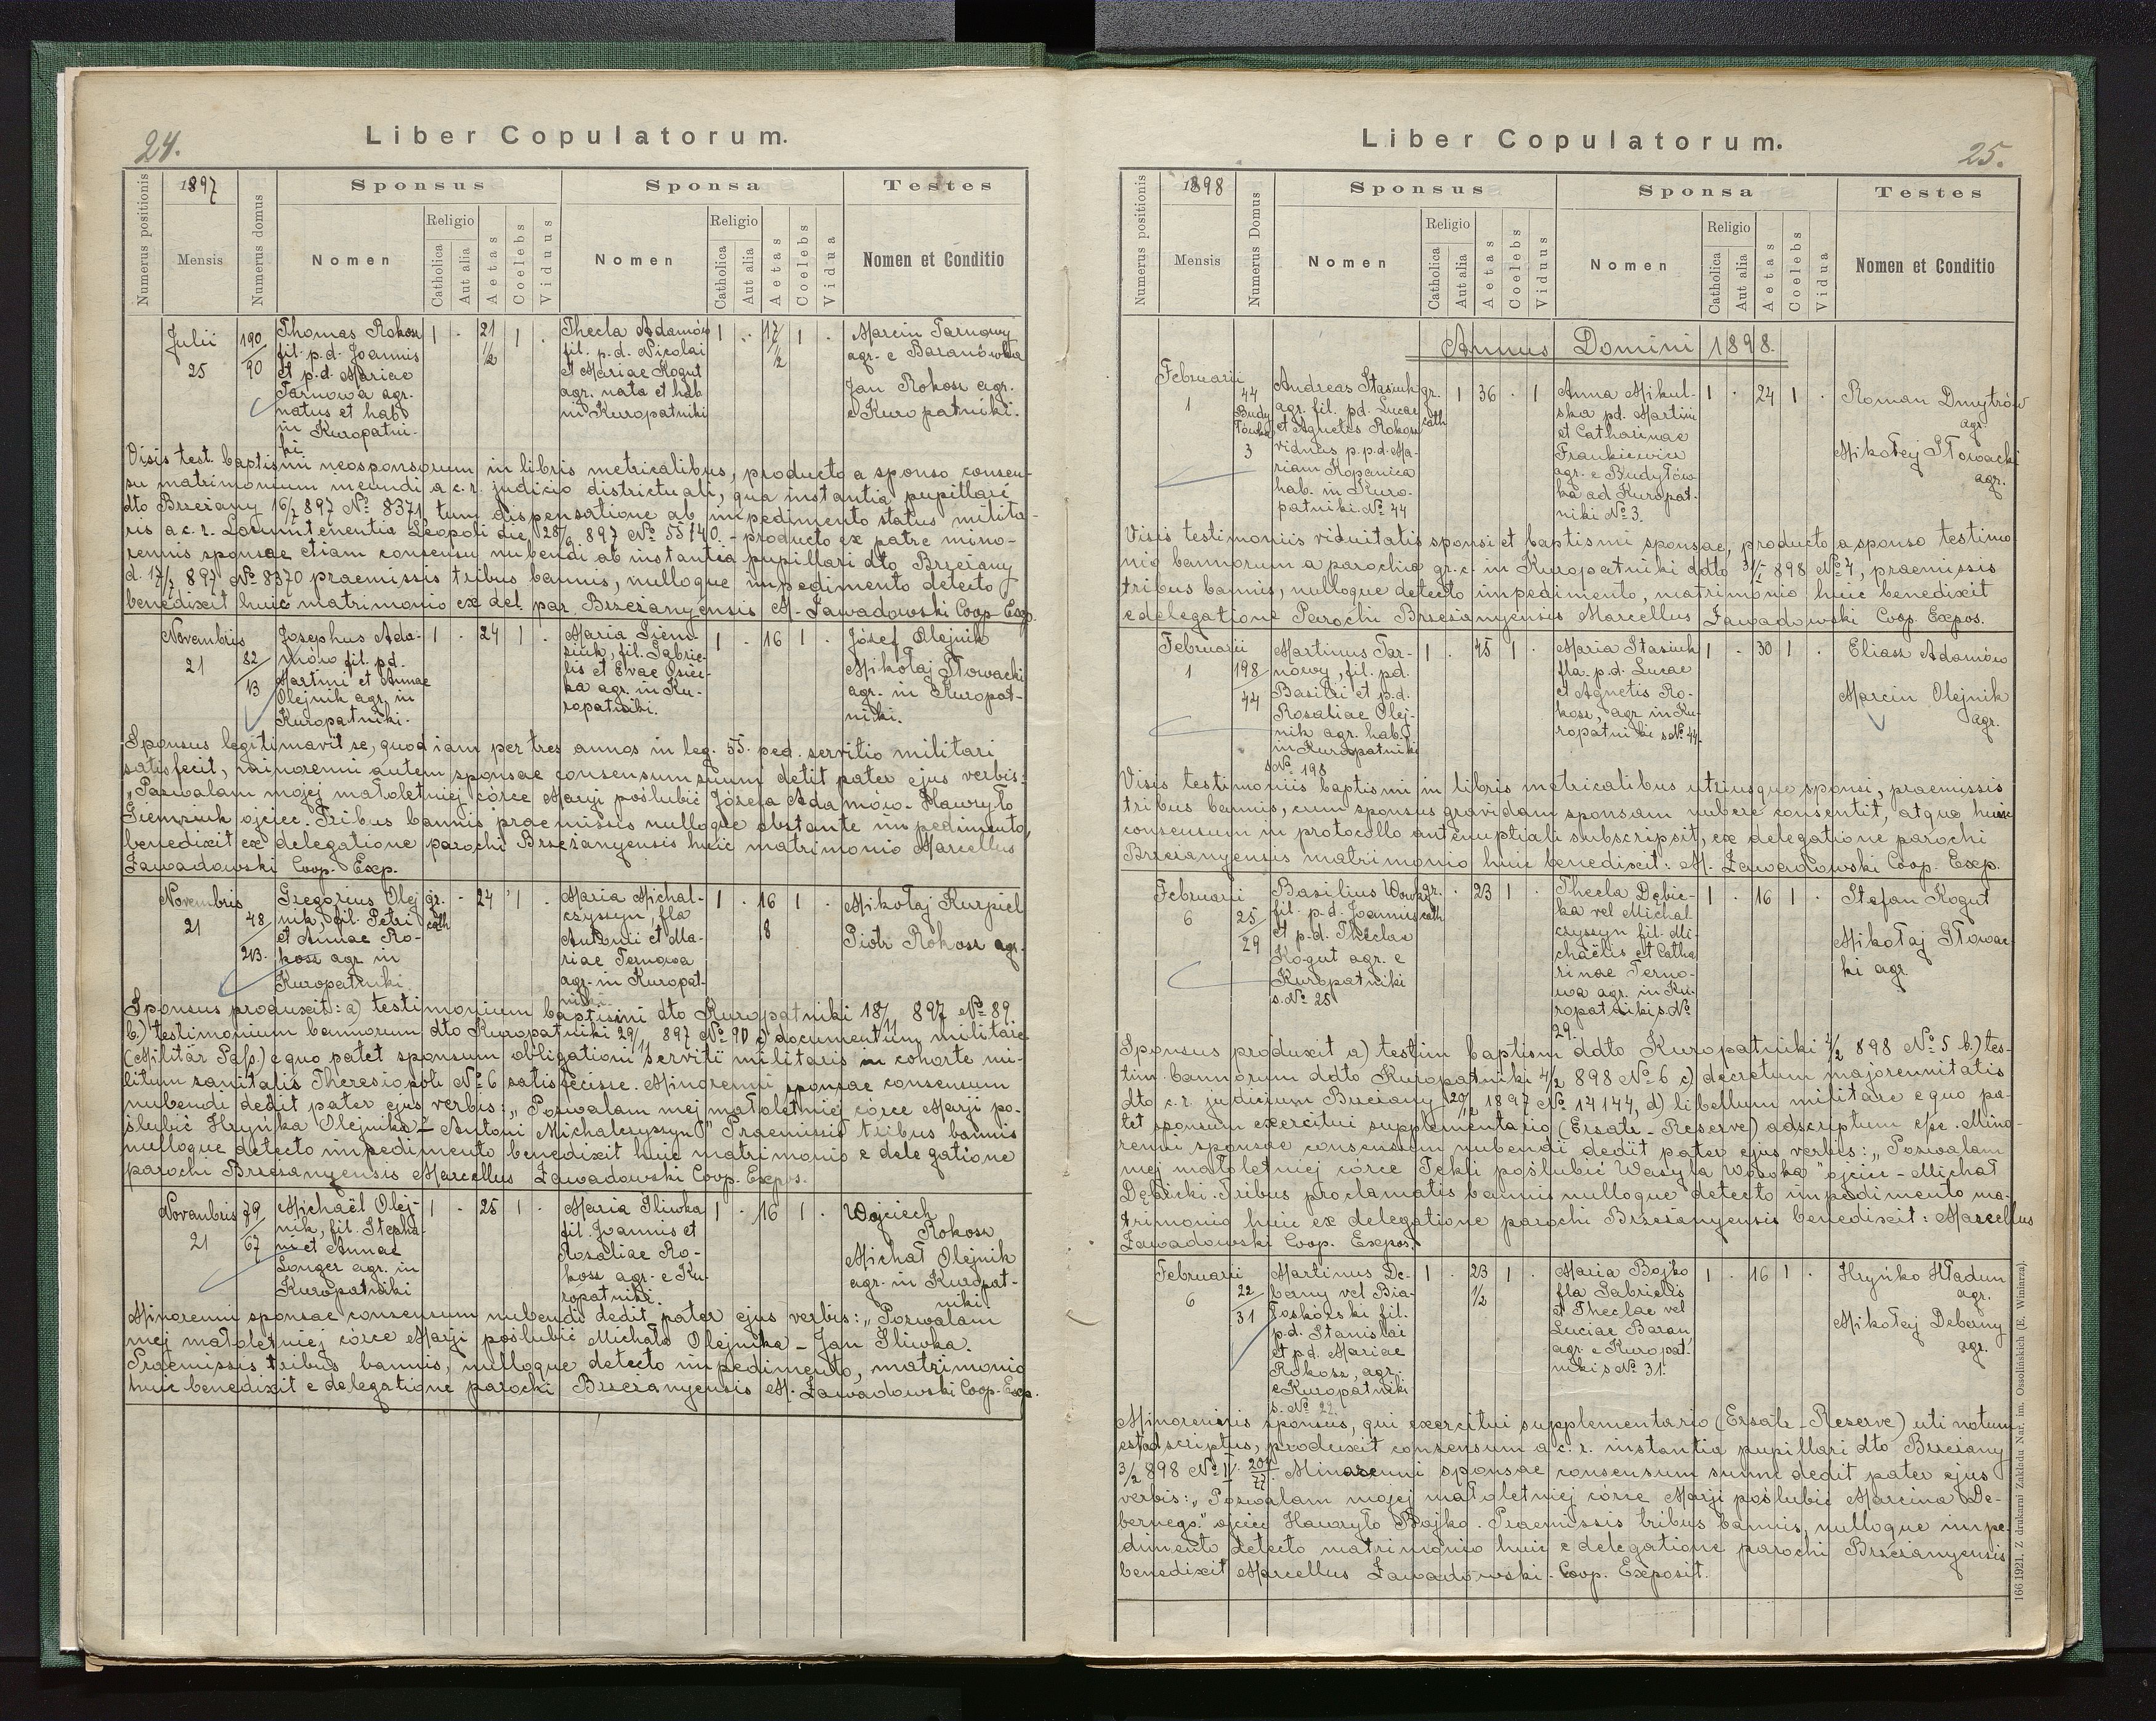 24.
Liber Copulatorum.
Numerus positionis
1897
Mensis
Numerus domus
Sponsus
Sponsa
Testes
Nomen
Religio
Catholica
Aut alia
Aetas
Coelebs
Viduus
Nomen
Religio
Catholica
Aut alia
Aetas
Coelebs
Vidua
Nomen et Conditio
Julii
25
190
90
Thomas Rokosz
fil. p.d. Joannis
et p.d. Mariae
Tarnowa agr.
natus et hab.
in Kuropatni-
ki.
1 · 21 1/2 1 ·
Thecla Adamów
fil. p.d. Nicolai
et Mariae Kogut
agr. nata et hab.
in Kuropatniki
1 · 17 1/2 1 ·
Marcin Tarnowy
agr. e Baranówka
Jan Rokosz agr.
e Kuropatniki.
Visis test. baptismi neosponsorum in libris metricalibus, producto a sponso consen-
su matrimonium ineundi a c.r. judicio districtuali, qua instantia pupillari
dto Brzeżany 16/7 897 No 8371 tum dispensatione ab impedimento status milita-
ris a c.r. Locumtenentia Leopoli die 28/6 897 No 55140. - producto ex patre mino-
rennis sponsae etiam consensu nubendi ab instantia pupillari dto Brzeżany
d. 17/7 897 No 8370 praemissis tribus bannis, nulloque impedimento detecto
benedixit huic matrimonio ex del. par. Brzeżanyensis M. Zawadowski Coop Exp.
Novembris
21
82
13
Josephus Ada-
mów fil. pd.
Martini et Annae
Olejnik agr. in
Kuropatniki.
1 · 24 1 ·
Maria Giem-
ziuk, fil. Gabrie-
lis et Evae
agr. in Ku-
ropatniki.
1 · 16 1 ·
Józef Olejnik
Mikołaj Słowacki
agr. in Kuropat-
niki.
Sponsus legitimavit se, quod iam per tres annos in leg. 55. ped. servitio militari
satisfecit, minorenni autem sponsae consensum suum dedit pater ejus verbis:
„Pozwalam mojej małoletniej córce Maryi poślubić Józefa Adamów. Hawryło
Giemziuk ojciec. Tribus bannis praemissis nulloque obstante impedimento,
benedixit ex delegatione parochi Brzeżanyensis huic matrimonio Marcellus
Zawadowski Coop. Exp.
Novembris
21
48
213.
Gregorius Olej
nik, fil. Petri
et Annae Ro-
kosz agr. in
Kuropatniki
gr. cath · 24 1 ·
Maria Michal-
czyszyn, fla
Antonii et Ma-
riae Ternowa
agr. in Kuropat-
niki.
1 · 16 8 1 ·
Mikołaj Kurpiel
Piotr Rokosz agr.
Sponsus produxit: a) testimonium baptismi dto Kuropatniki 18/11 897 No 89.
b.) testimonium bannorum dto Kuropatniki 29/11 897 No 90 c) documentum militare
(Militär Paſs.) e quo patet sponsum obligationi servitii militaris in cohorte mi-
litum sanitatis Theresiopoli No 6 satisfecisse. Minorenni sponsae consensum
nubendi dedit pater ejus verbis: „Pozwalam mej małoletniej córce Marji po-
ślubić Hryńka Olejnika - Antoni Michalczyszyn" Praemissis tribus bannis
nulloque detecto impedimento benedixit huic matrimonio e delegatione
parochi Brzeżanyensis Marcellus Zawadowski Coop. Expos.
Novembris
21
79
67
Michaël Olej-
nik, fil. Stepha-
ni et Annae
Longer agr. in
Kuropatniki
1 · 25 1 ·
Maria Śliwka
fil. Joannis et
Rosaliae Ro-
kosz agr. e Ku-
ropatniki.
1 · 16 1 ·
Wojciech
Rokosz
Michał Olejnik
agr. in Kuropat-
niki.
Minorenni sponsae consensum nubendi dedit pater ejus verbis: „Pozwalam
mej małoletniej córce Marji poślubić Michała Olejnika - Jan Śliwka.
Praemissis tribus bannis, nulloque detecto impedimento, matrimonio
huic benedixit e delegatione parochi Brzeżanyensis M. Zawadowski Coop. Exp.
25.
Liber Copulatorum.
Numerus positionis
1898
Mensis
Numerus Domus
Sponsus
Sponsa
Testes
Nomen
Religio
Catholica
Aut alia
Aetas
Coelebs
Viduus
Nomen
Religio
Catholica
Aut alia
Aetas
Coelebs
Vidua
Nomen et Conditio
Annus Domini 1898.
Februarii
1
44
Budy
łówka
3
Andreas Stasiuk
agr. fil. pd. Lucae
et Agnetis Rokosz
viduus p. p.d. Ma-
riam Kopanica
hab. in Kuro-
patniki. No 44
gr. cath 1 36 · 1
Anna Mikul-
ska pd. Martini
et Catharinae
Frankiewicz
agr. e Budyłów
ka ad Kuropat-
niki No 3.
1 · 24 1 ·
Roman Dmytrów
agr.
Mikołej Słowacki
agr.
Visis testimoniis viduitatis sponsi et baptismi sponsae, producto a sponso testimo-
nio bannorum a parochia gr.c. in Kuropatniki ddto 31/1 898 No 7, praemissis
tribus bannis, nulloque detecto impedimento, matrimonio huic benedixit
e delegatione Parochi Brzeżanyensis Marcellus Zawadowski Coop. Expos.
Februarii
1
198
44
Martinus Tar-
nowy, fil. pd.
Basilii et p.d.
Rosaliae Olej-
nik agr. hab.
in Kuropatniki
s No 198
1 · 45 1 ·
Maria Stasiuk
fla. p.d. Lucae
et Agnetis Ro-
kosz, agr. in Ku-
ropatniki s No 44.
1 · 30 1 ·
Eliasz Adamów
Marcin Olejnik
agr.
Visis testimoniis baptismi in libris metricalibus utriusque sponsi, praemissis
tribus bannis, cum sponsus gravidam sponsam nubere consentit, atque hunc
consensum in protocollo antenuptiali subscripsit, ex delegatione parochi
Brzeżanyensis matrimonio huic benedixit: M. Zawadowski Coop. Exp.
Februarii
6
25
29
Basilius Wowk
fil. p.d. Joannis
et p.d. Theclae
Kogut agr. e
Kuropatniki
s. No 25
gr. cath · 23 1 ·
Thecla Dębic-
ka vel Michal
czyszyn fil. Mi-
chaëlis et Catha
rinae Terno-
wa agr. in Ku-
ropatniki s. No
29.
1 · 16 1 ·
Stefan Kogut
Mikołaj Słowac-
ki agr.
Sponsus produxit a) testim baptism ddto Kuropatniki 4/2 898 No 5 b.) tes-
tim. bannorum ddto Kuropatniki 4/2 898 No 6 c) decretum majorennitatis
dto c.r. judicium Brzeżany 20/12 1897 No 14144, d) libellum militare e quo pa-
tet sponsum exercitui supplementario (Ersatz-Reserve) adscriptum eſse. Mino-
renni sponsae consensum nubendi dedit pater ejus verbis: „Pozwalam
mej małoletniej córce Tekli poślubić Wasyla Wowka" ojciec - Michał
Dębicki. Tribus proclamatis bannis nulloque detecto impedimento ma-
trimonio huic ex delegatione parochi Brzeżanyensis benedixit: Marcellus
Zawadowski Coop. Expos.
Februarii
6
22
31
Martinus De-
berny vel Bia-
łoskórski fil.
p.d. Stanislai
et p.d. Mariae
Rokosz, agr.
e Kuropatniki
s. No 22.
1 · 23 1/2 1 ·
Maria Bojko
fla Gabrielis
et Theclae vel
Luciae Baran
agr. e Kuropat-
niki s No 31.
1 · 16 1 ·
Hryńko Hładun
agr.
Mikołej Deberny
agr.
Minorennis sponsus, qui exercitui supplementario (Ersatz-Reserve) uti notum
est adscriptus, produxit consensum a c.r. instantia pupillari dto Brzeżany
3/2 898 No IV. Minorenni sponsae consensum suum dedit pater ejus
verbis: „Pozwalam mojej małoletniej córce Marji poślubić Marcina De-
bernego." ojciec Hawryło Bojko. Praemissis tribus bannis, nulloque impe-
dimento detecto matrimonio huic e delegatione parochi Brzeżanyensis
benedixit Marcellus Zawadowski. Coop. Exposit.
166 1921. Z drukarni Zakładu Nar. im. Ossolińskich (E. Winiarza).